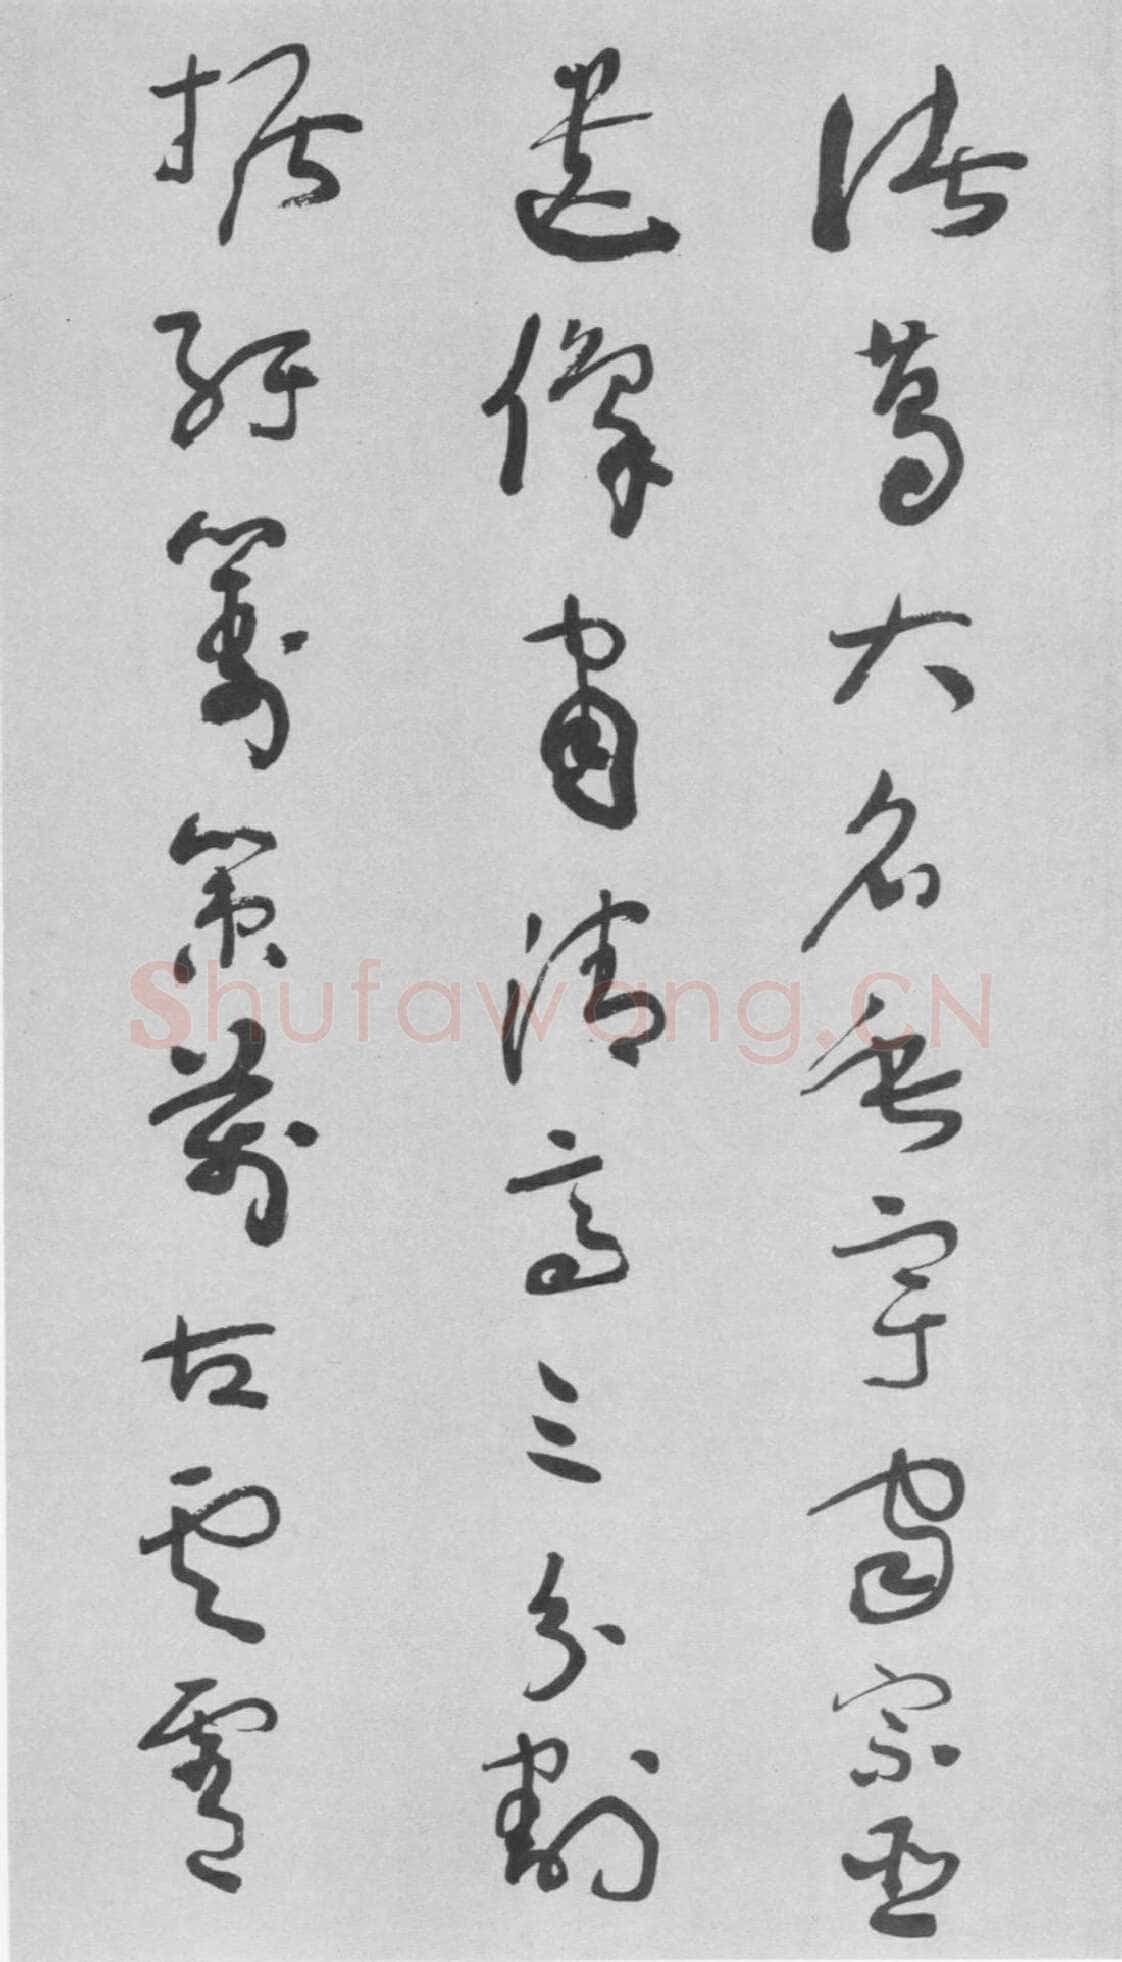 諸葛大名垂宇宙宗臣
遺像肅清高三分割
据紆籌策萬古雲霄
Shufawang.CN